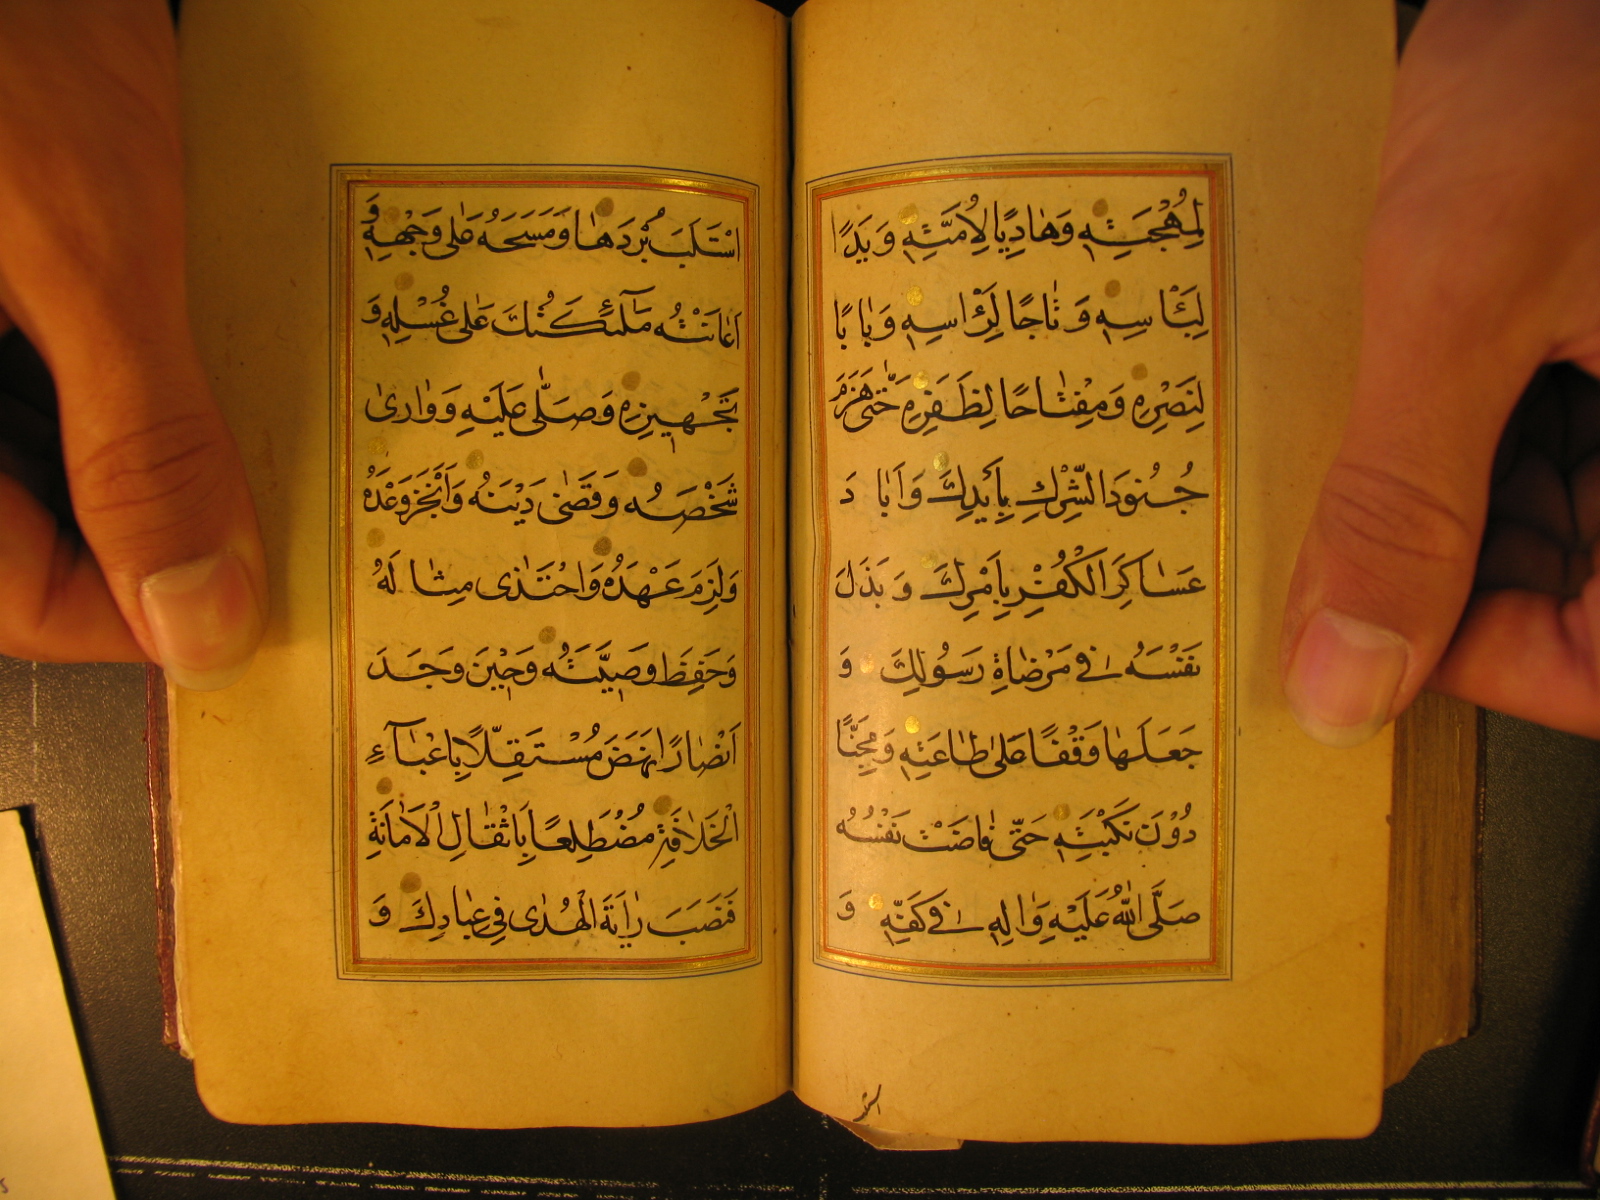 لِمُهْجَتِهِ وَهَادِيًا لِاُمَّتِهِ وَ يَدًا
لِبَأْسِهِ وَ تَاجًا لِرَأْسِهِ وَ بَابًا
لِنَصْرِهِ وَ مِفْتَاحًا لِظَفَرِهِ حَتّٰى هَزَمَ
جُنُودَ الشِّرْكِ بِأَيْدِكَ وَ اَبَادَ
عَسَاكِرَ الْكُفْرِ بِاَمْرِكَ وَ بَذَلَ
نَفْسَهُ فِي مَرْضَاةِ رَسُولِكَ وَ
جَعَلَهَا وَقْفًا عَلٰى طَاعَتِهِ وَ مِجَنًّا
دُونَ نَكْبَتِهِ حَتّٰى فَاضَتْ نَفْسُهُ
صَلَّى اللّٰهُ عَلَيْهِ وَاٰلِهِ فِي كَفِّهِ وَ
استلب
اسْتَلَبَ بُرْدَهَا وَ مَسَحَهُ عَلٰى وَجْهِهِ وَ
اَعَانَتْهُ مَلٰٓئِكَتُكَ عَلٰى غُسْلِهِ وَ
تَجْهِيزِهِ وَ صَلّٰى عَلَيْهِ وَ وَارٰى
شَخْصَهُ وَ قَضٰى دَيْنَهُ وَ اَنْجَزَ وَعْدَهُ
وَ لَزِمَ عَهْدَهُ وَ احْتَذٰى مِثَالَهُ
وَ حَفِظَ وَصِيَّتَهُ وَ حِينَ وَجَدَ
اَنْصَارًا نَهَضَ مُسْتَقِلًّا بِاَعْبَآءِ
الْخِلَافَةِ مُضْطَلِعًا بِاَثْقَالِ الْاَمَانَةِ
فَنَصَبَ رَايَةَ الْهُدٰى فِي عِبَادِكَ وَ